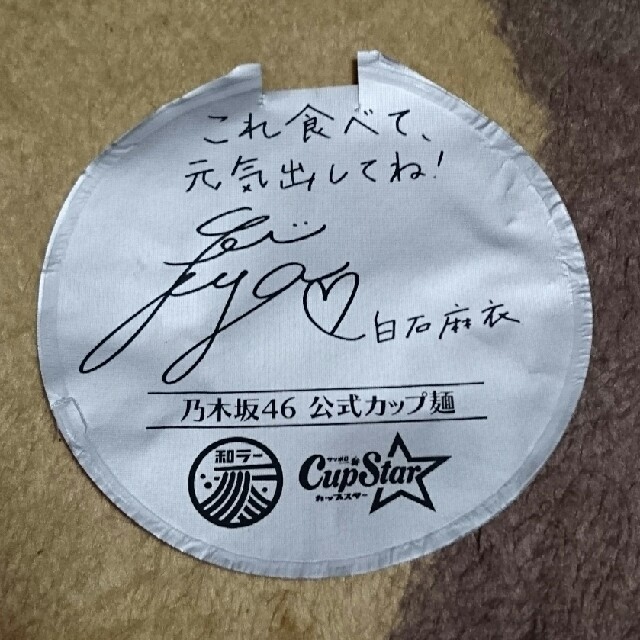 これ食べて、
元気出してね!
白石麻衣
乃木坂46 公式カップ麺
和ラー
サッポロ一番
CupStar
カップスター